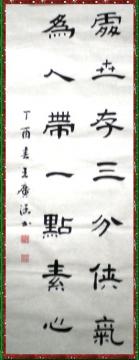 處世存三分俠氣
為人帶一點素心
丁酉春王廣溪书